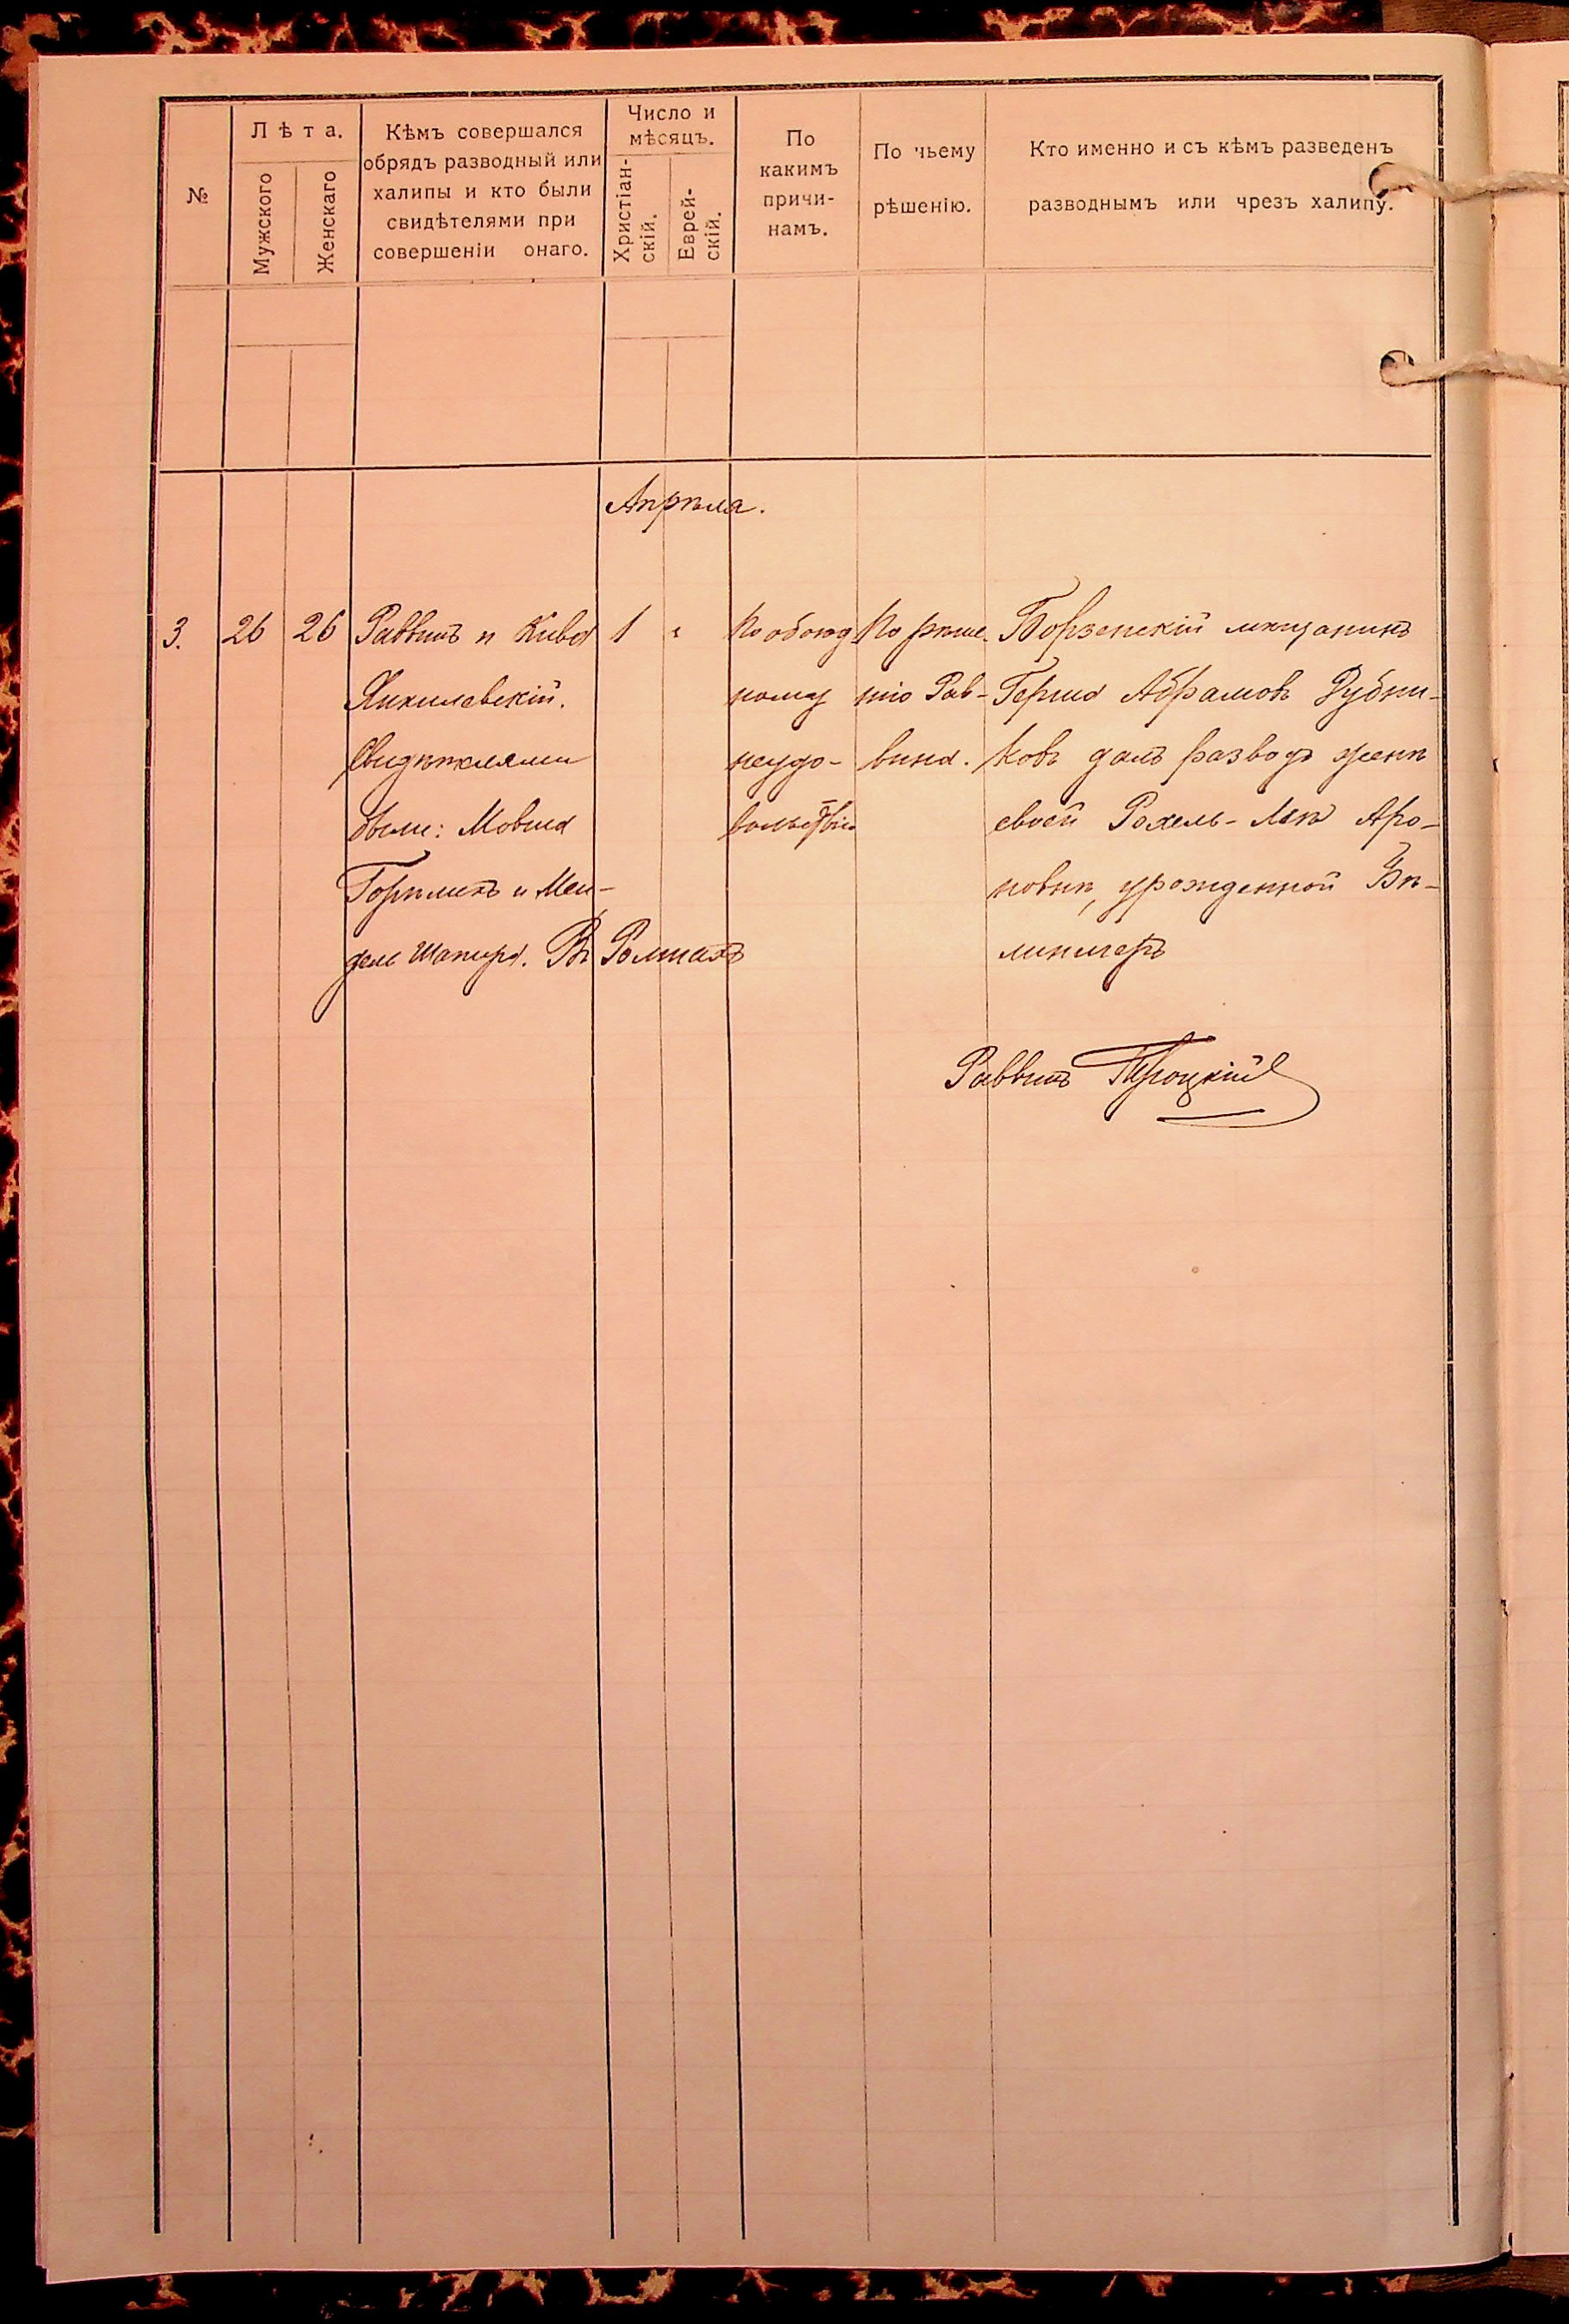 №
Лѣта.
Мужского
Женскаго
Кѣмъ совершался
обрядъ разводный или
халипы и кто были
свидѣтелями при
совершеніи онаго.
Число и
мѣсяцъ.
Христіан-
скій.
Еврей-
скій.
По
какимъ
причи-
намъ.
По чьему
рѣшенію.
Кто именно и съ кѣмъ разведенъ
разводнымъ или чрезъ халипу.
Апрѣля.
3.
26
26
Раввинъ Кива
Свидѣтелями
были: Мовша
Горѣликъ и Мен-
дель Шапиро. Въ Ромнахъ
1
По обоюд
ному
неудо-
вольствію
По рѣше-
нію Рав-
вина.
Борзенскій мѣщанинъ
Герша Абрамовъ Рубни-
ковъ далъ разводъ женѣ
своей Рохель-Леѣ Аро-
новнѣ, урожденной
Раввинъ Троцкій